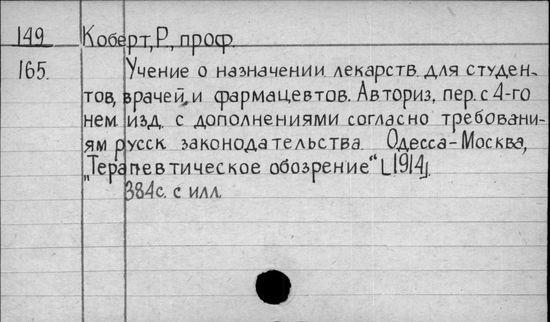 149 Коберт, Р., проф.
165. Учение о назначении лекарств. для студен-
тов, врачей и фармацевтов. Авториз. пер. с 4-го
нем изд. с дополнениями согласно требовани-
ям русск законодательства. Одесса-Москва,
„Терапевтическое обозрение“ [1914].
384с. с илл.